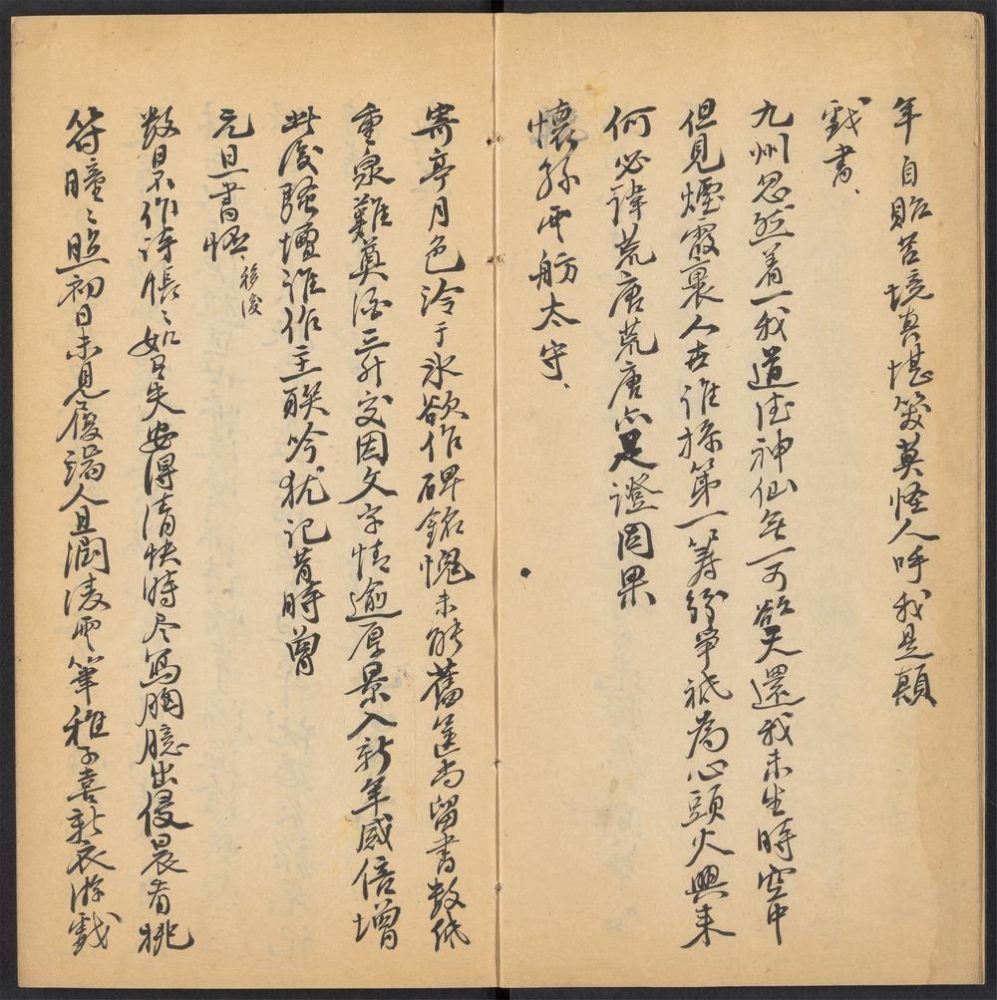 年自貽苦境真堪笑莫怪人呼我是顛
戲書
九州忽然著一我道德神仙無可欲天還我未生時空中
但見煙霞裏人世誰操第一籌紛爭祇為心頭火興來
何必諱荒唐荒唐亦足證因果
懷孫雨舫太守
寄亭月色冷于冰欲作碑銘愧未能舊篋尚留書數紙
重泉難奠酒三升交因文字情逾厚景入新年感倍增
此後騷壇誰作主聯吟猶記昔時曾
元旦書懷
數日不作詩悵〻如有失安得清快時尽寫胸臆出侵晨看桃
符曈〻照初日未見履端人且潤凌雲筆稚子喜新衣游戲